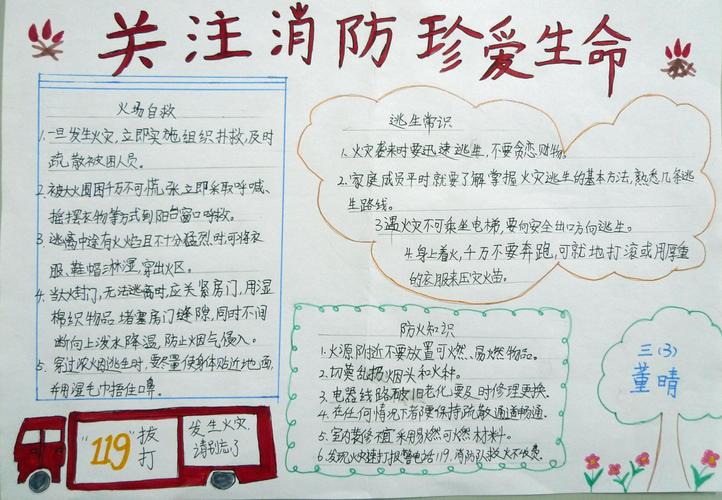 关注消防珍爱生命
火场自救
1.一旦发生火灾,立即实施组织扑救,及时
疏散被困人员。
2.被大火围困千万不可慌张立即采取呼喊、
摇摆衣物等方式到阳台窗口呼救。
3.逃离中途有火焰且不十分猛烈时可将衣
服、鞋帽淋湿,穿出火区。
4.当大火封门,无法逃离时,应关紧房门,用湿
棉织物品堵塞房门缝隙,同时不间
断向上泼水降温,防止烟气侵入。
5.穿过浓烟逃生时,要尽量使身体贴近地面,
并用湿毛巾捂住口鼻。
逃生常识
1.火灾袭来时要迅速逃生,不要贪恋财物。
2.家庭成员平时就要了解掌握火灾逃生的基本方法,熟悉几条逃
生路线。
3遇火灾不可乘坐电梯,要向安全出口方向逃生。
4.身上着火,千万不要奔跑,可就地打滚或用厚重
的衣服来压灾火苗。
防火知识
1.火源附近不要放置可燃、易燃物品。
2.切莫乱扔烟头和火种。
3.电器线路破旧老化要及时修理更换。
4.在任何情况下者要保持疏散通道畅通。
5.室内装修不宜采用易燃可燃材料。
6.发现火速打报警电话119,消防队救火不收费。
三(3)
董晴
"119"拔
打
发生火灾,
请别忘了